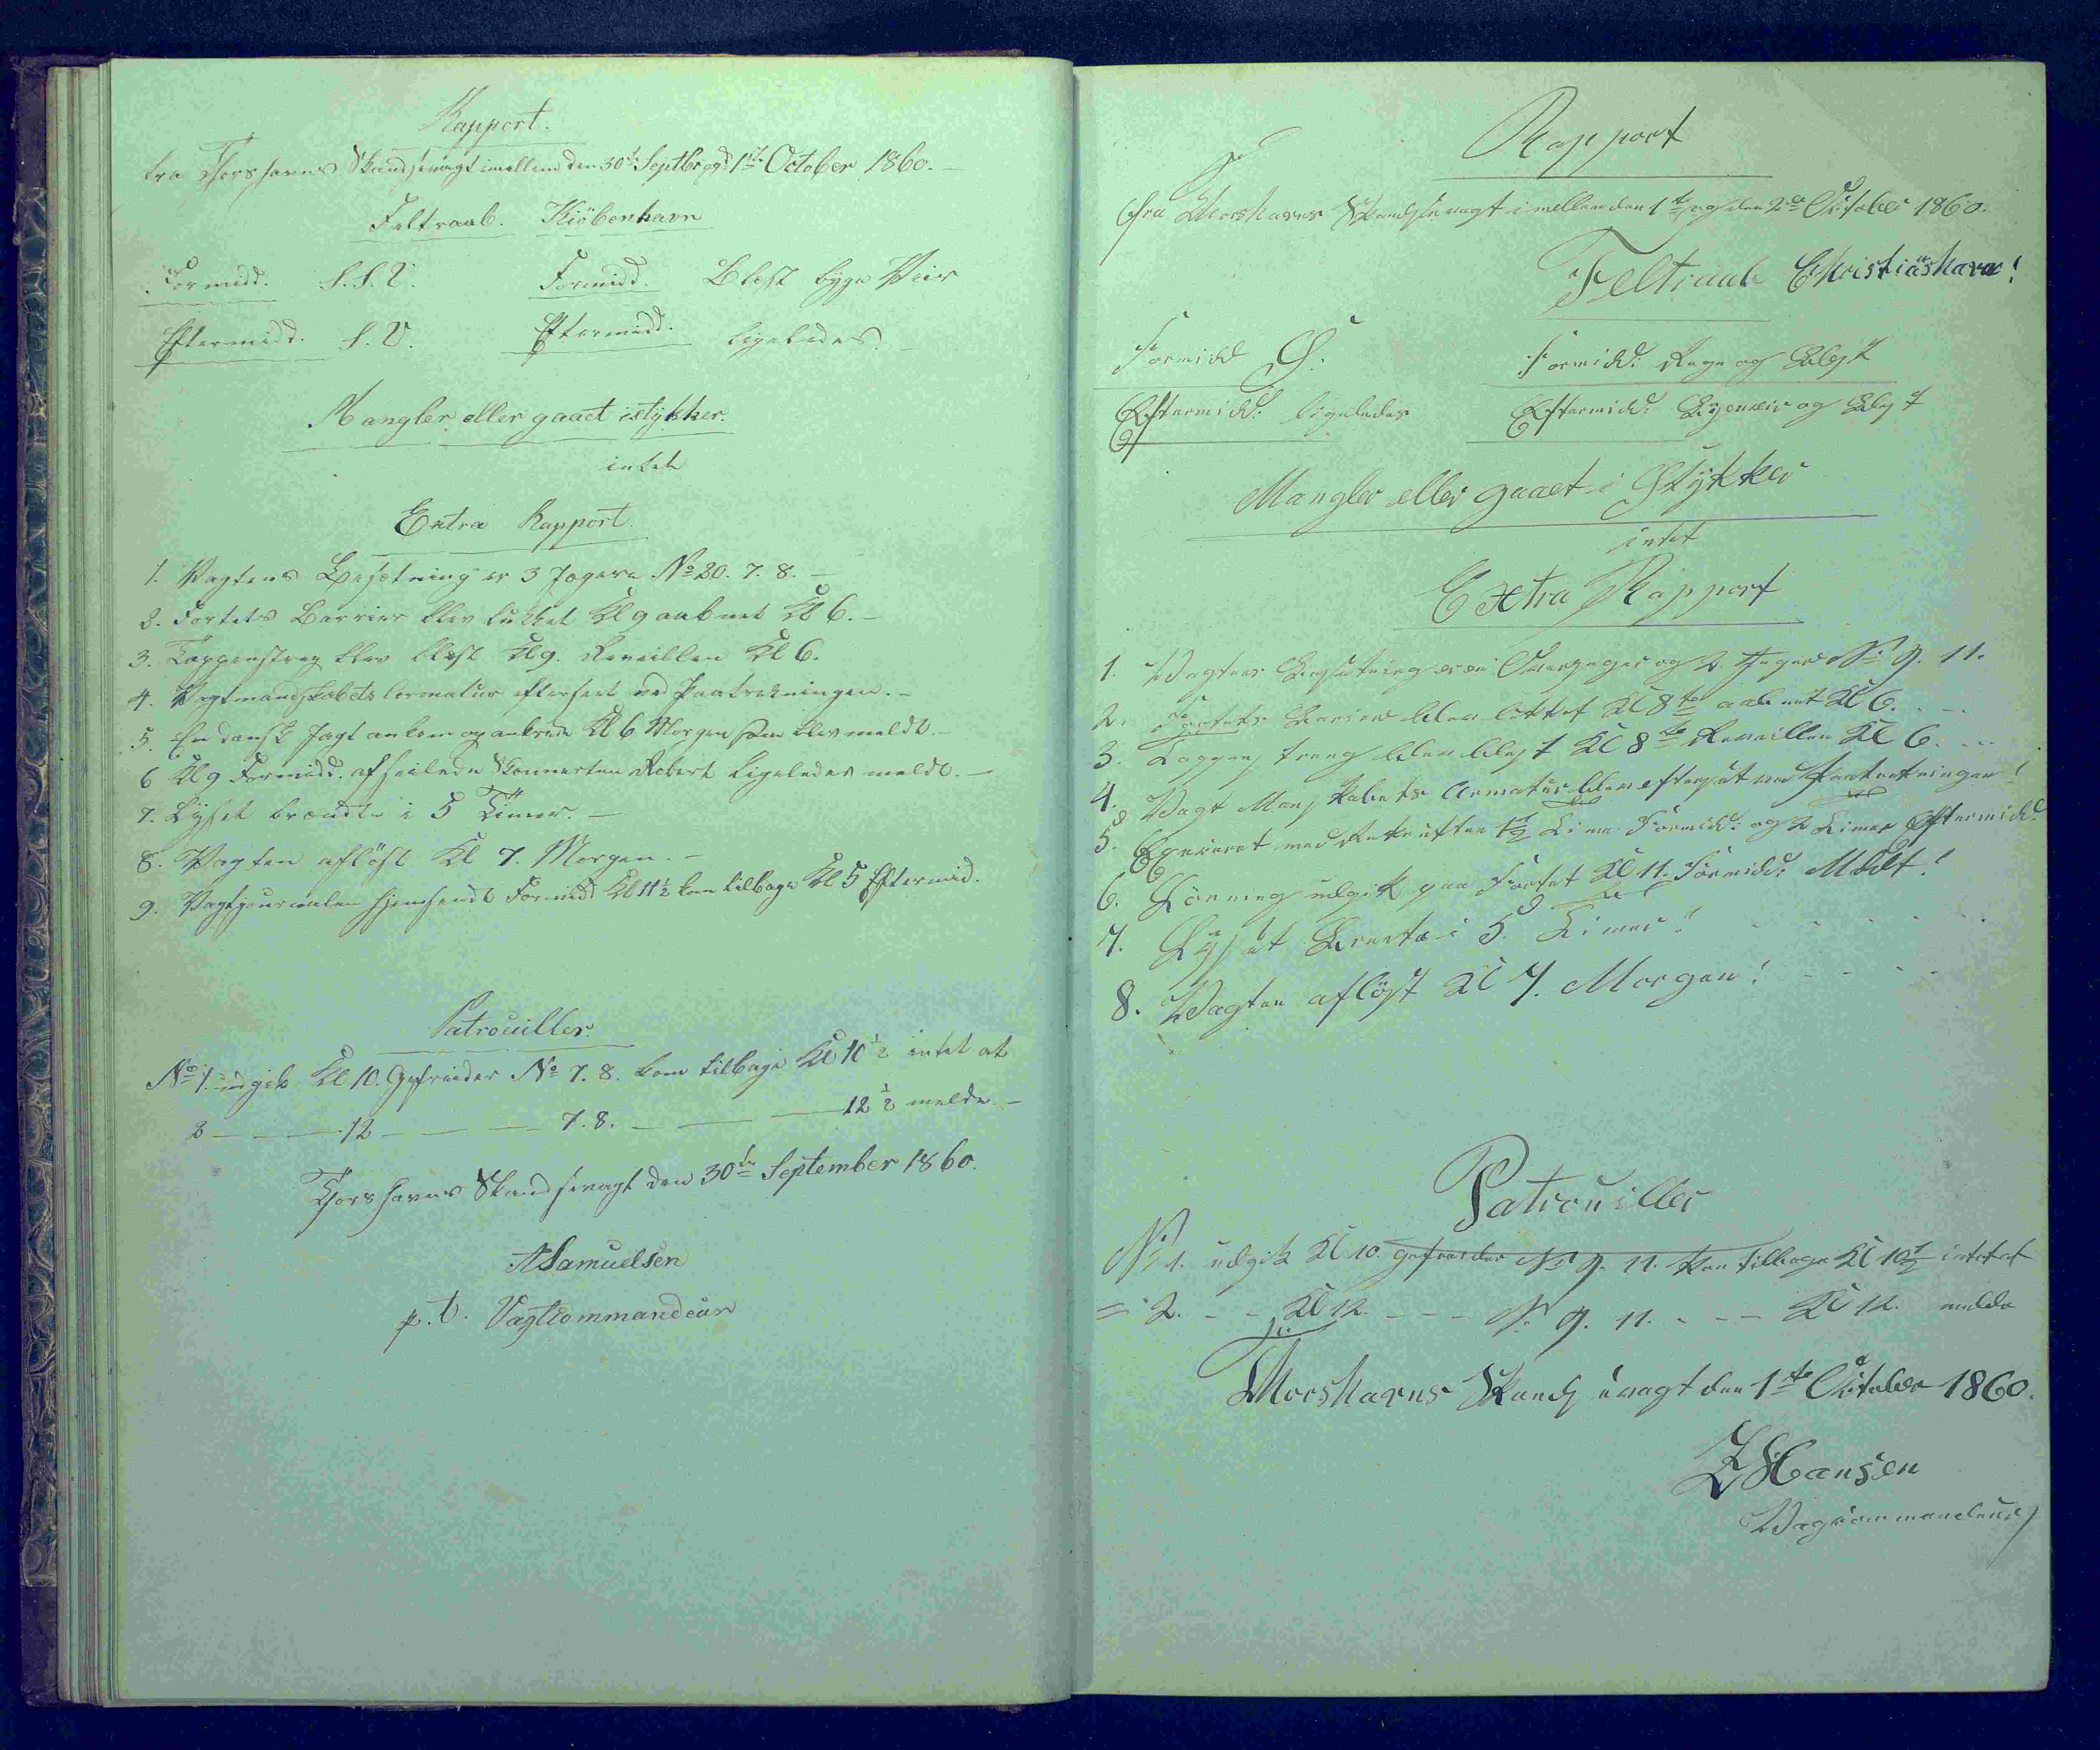 Rapport.
fra Thorshavns Skandsevagt imellem den 30te Septbr og d 1ste October 1860.
Feltraab. Kiöbenhavn
Formidd. S.S.V. Formidd. Blæst byge Veir
Eftermidd. S.V. Eftermidd. ligeledes.
Mangler eller gaaet istykker.
intet
Extra Rapport.
1. Vagtens Besætning er 3 Jægere No 20. 7. 8. —
2. Fortets Barrier blev lukket Kl 9 aabnet Kl 6. —
3. Tappenstreg blev blæst Kl 9. Reveillen Kl 6.
4. Vagtmandskabets Armatur efterseet ved Paatrækningen. —
5. En dansk Jagt ankom og ankrede Kl 6 Morgen som blev meldt. —
6 Kl 9 Formidd. afseilede Skonnerten Robert ligeledes meldt. —
7. Lyset brændte i 5 Timer. —
8. Vagten aflöst Kl 7. Morgen. —
9. Vagtjournalen hjemsendt Formidd Kl 11½ kom tilbage Kl 5 Eftermid.
Patrouiller.
No 1. udgik Kl 10. Gefreider No 7. 8. kom tilbage Kl 10½ intet at
2 — — — 12 — — — 7. 8. — — — 12½ melde. —
Thorshavns Skandsevagt den 30te September 1860.
A Samuelsen
p. t. Vagtcommandeur
Rapport
Fra Thorshavns Skandsevagt imellem den 1te og den 2den October 1860.
Feltraab Christianshavn!
Formidd Ø. Formidd: Regn og Blæst
Eftermidd: ligeledes Eftermidd: Bygeveir og Blæst
Mangler eller gaaet i Stykker
intet
Extra Rapport
1. Vagtens Besætning er en Overjæger og 2 Jægere No 9. 11.
2. Fortets Barriere blev lukket Kl 8te aabnet Kl 6. . —
3. Tappenstreng blev blæst Kl 8te Reveillen Kl 6. . . —
4. Vagt Manskabets Armatur blev efterset ved Paatrækningen!
5. Exerceret med Rekrutter 1½ Time Formidd: og 2 Timer Eftermidd:
6. Lönning udgik paa Fortet Kl 11. Formidd: Meldt!
7. Lyset Brente i 5. Timer!
8. Vagten aflöst Kl 7. Morgen! - - - -
Patrouiller
No 1. udgik Kl 10. gefreider No 9. 11. kom tilbage Kl 10½ intet at
= 2. - - Kl 12. - - - No 9. 11. - - - Kl 12. melde
Thorshavns Skandsevagt den 1te October 1860.
Hansen
Vagtcommandeur